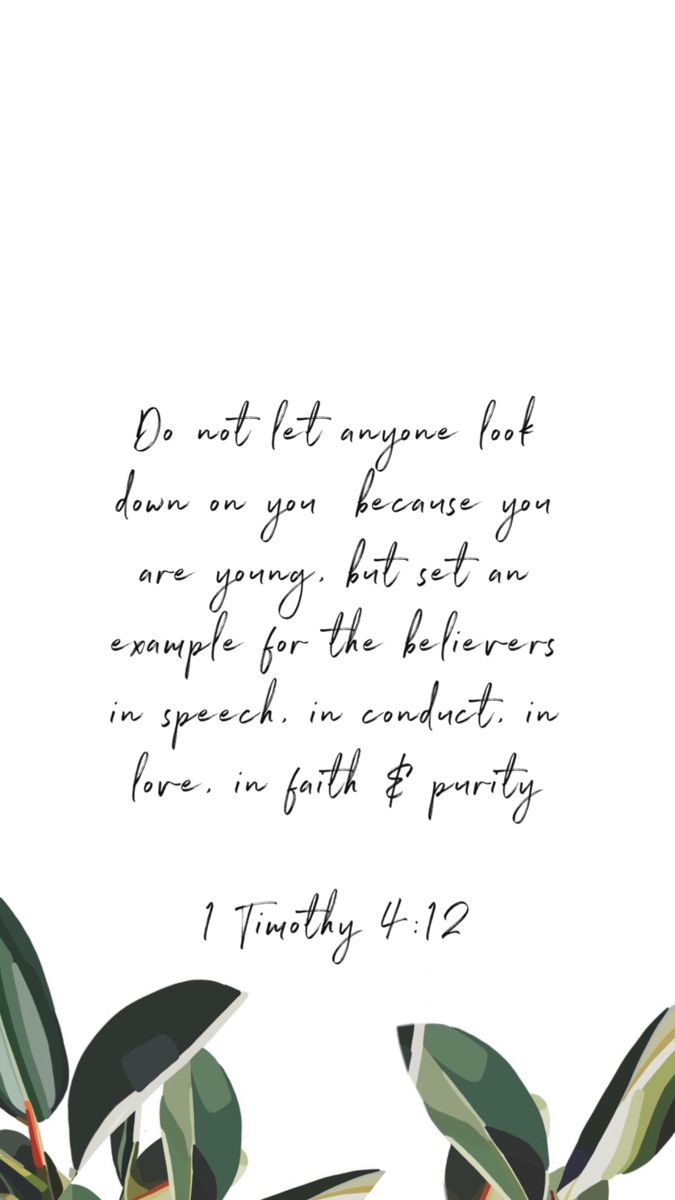 Do not let anyone look
down on you because you
are young, but set an
example for the believers
in speech, in conduct, in
love, in faith & purity
1 Timothy 4:12